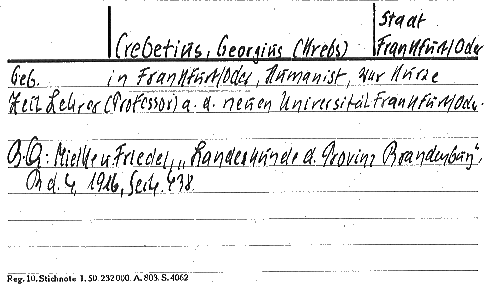 Stadt
Crebetius, Georgius (Krebs) Frankfurt/Oder
Geb. in Frankfurt/Oder, Humanist, war kurze
Zeit Lehrer (Professor) a. d. neuen Universität Frankfurt/Oder.
B.Q: Mielke u Friedel, „Landeskunde d. Provinz Brandenburg",
Bd. 4, 1916, Seite 438
Reg. 10. Stichnote 1. 50. 232 000. A. 803. S. 4062